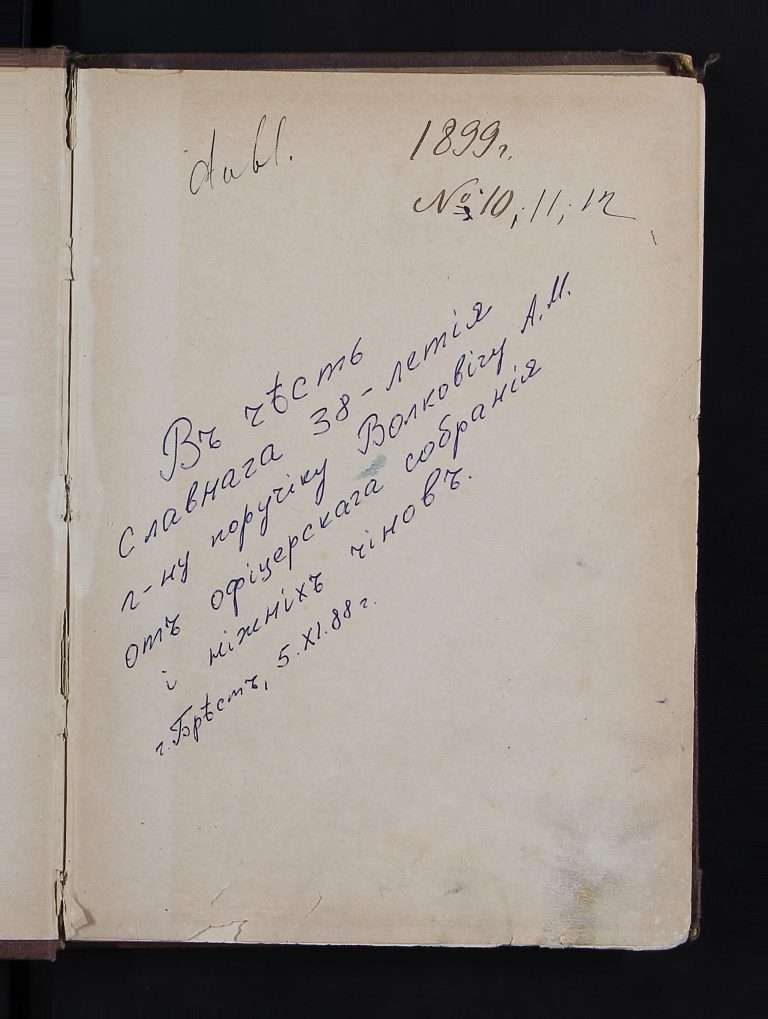 1899г.
№ 10, 11, 12
Въ чѣсть
славнаго 38-летія
г-ну поручіку Волковічу А.М.
отъ офіцерскаго собранія
і ніжніхъ чіновъ.
г. Брѣстъ, 5.XI.88 г.